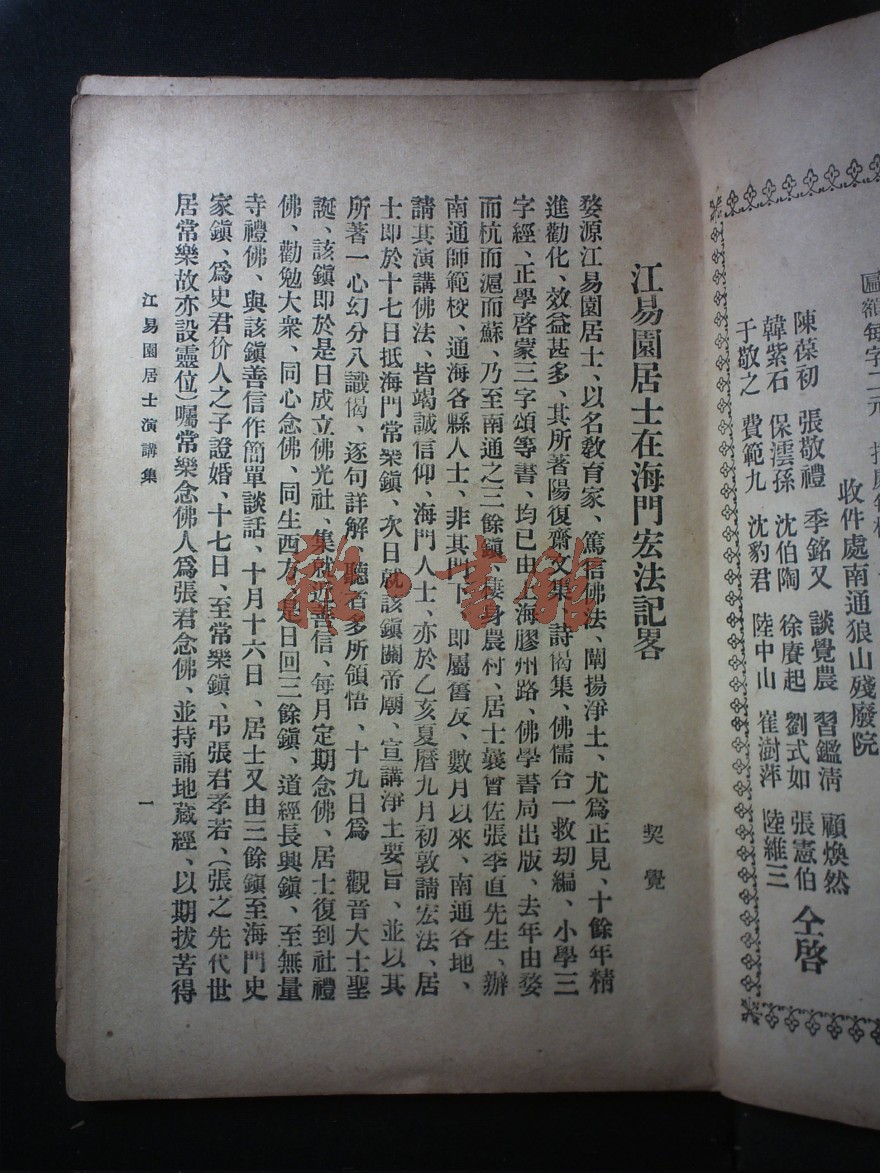 匾額每字二元
收件處南通狼山殘廢院
陳葆初 張敬禮 季銘又 談覺農 習鑑清 顧煥然
韓紫石 保澐孫 沈伯陶 徐賡起 劉式如 張憲伯 仝啓
于敬之 費範九 沈豹君 陸中山 崔澍萍 陸維三
江易園居士在海門宏法記畧
契覺
婺源江易園居士、以名教育家、篤信佛法、闡揚淨土、尤爲正見、十餘年精
進勸化、效益甚多、其所著陽復齋文集、詩偈集、佛儒合一救劫編、小學三
字經、正學啓蒙三字頌等書、均已由上海膠州路、佛學書局出版、去年由婺
而杭而滬而蘇、乃至南通之三餘鎭、棲身農村、居士曩曾佐張季直先生、辦
南通師範校、通海各縣人士、非其門下、即屬舊友、數月以來、南通各地、
請其演講佛法、皆竭誠信仰、海門人士、亦於乙亥夏曆九月初敦請宏法、居
士即於十七日抵海門常樂鎭、次日就該鎭關帝廟、宣講淨土要旨、並以其
所著一心幻分八識偈、逐句詳解、聽者多所領悟、十九日爲 觀音大士聖
誕、該鎭即於是日成立佛光社、集就近善信、每月定期念佛、居士復到社禮
佛、勸勉大衆、同心念佛、同生西方、是日回三餘鎭、道經長興鎭、至無量
寺禮佛、與該鎭善信作簡單談話、十月十六日、居士又由三餘鎭至海門史
家鎭、爲史君价人之子證婚、十七日、至常樂鎭、弔張君孝若、(張之先代世
居常樂故亦設靈位)囑常樂念佛人爲張君念佛、並持誦地藏經、以期拔苦得
江易園居士演講集
一
雜·書館